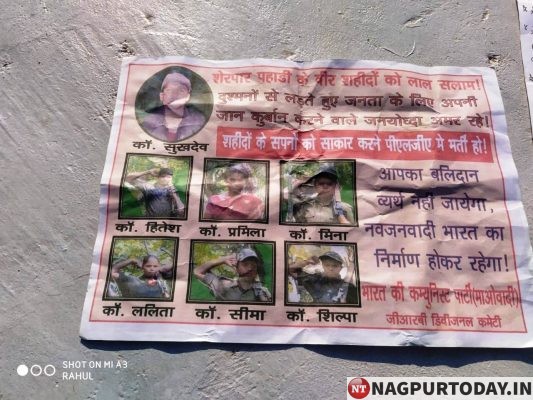 शेरपार पहाडी के वीर शहीदों को लाल सलाम!
दुश्मनों से लड़ते हुए जनता के लिए अपनी
जान कुर्बान करने वाले जनयोध्दा अमर रहे!
शहीदों के सपनों को साकार करने पीएलजीए मे भर्ती हो!
कॉ. सुखदेव
कॉ. हितेश
कॉ. प्रमिला
कॉ. मिना
कॉ. ललिता
कॉ. सीमा
कॉ. शिल्पा
आपका बलिदान
व्यर्थ नहीं जायेगा,
नवजनवादी भारत का
निर्माण होकर रहेगा!
भारत की कम्युनिस्ट पार्टी(माओवादी)
जीआरबी डिवीजनल कमेटी
SHOT ON MI A3
RAHUL
NT NAGPURTODAY.IN